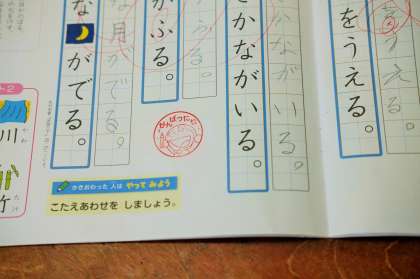 うえる。
をうえる。
かながいる。
さかながいる。
ふる。
がふる。
な月がでる。
ながでる。
かきおわった 人は やって みよう
こたえあわせを しましょう。
2
川
かわ
竹
たけ